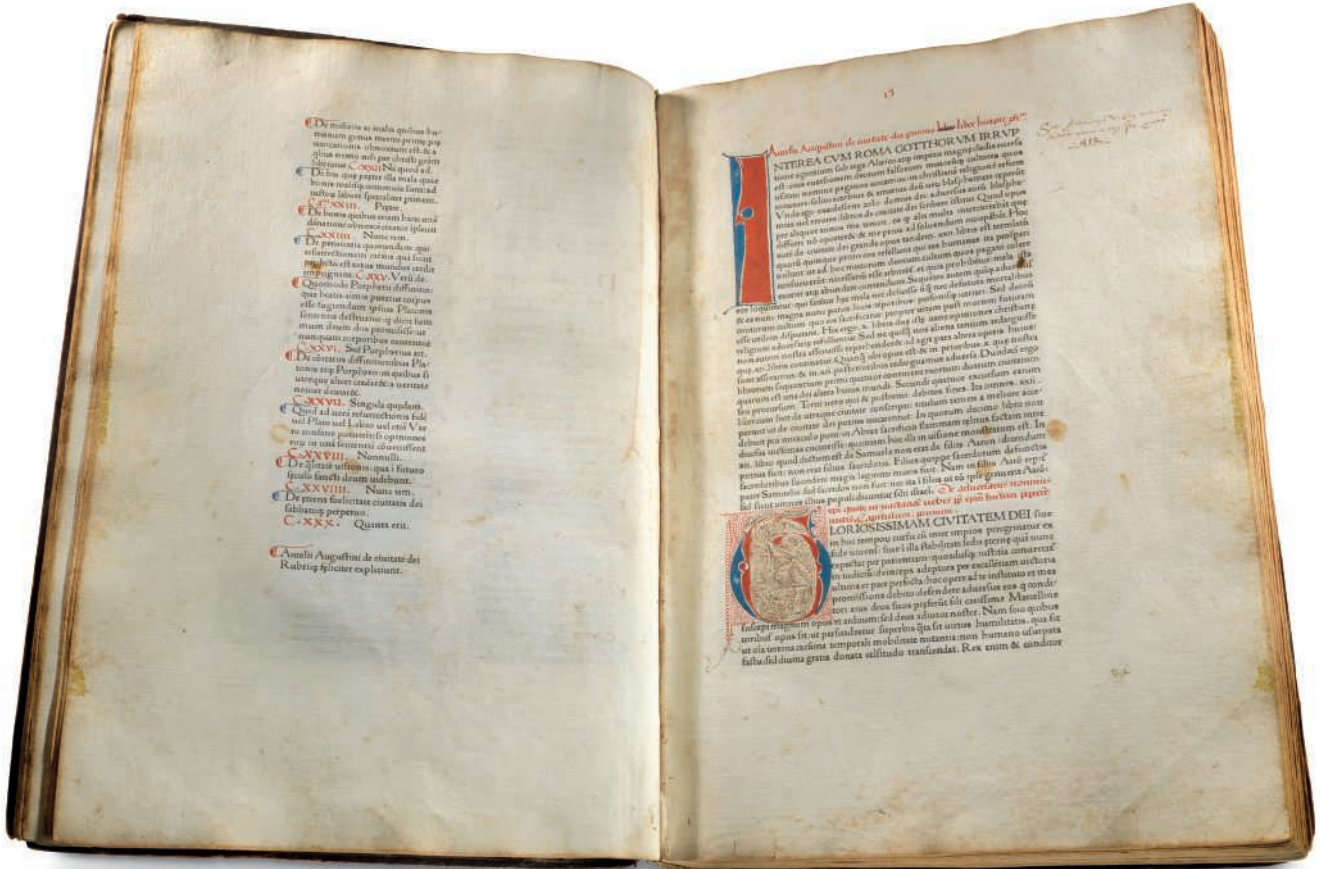 De miseriis ac malis quibus hu-
manum genus merito prime pre
uaricationis obnoxium est: & a
quibus nemo nisi per christi grãm
liberatur C. XXII. Ne quod ad.
De his que preter illa mala quae
bonis malisq; communia sunt: ad
iustorũ laborẽ specialiter pertinent.
C. XXIII. Preter.
De bonis quibus etiam hanc uitã
C. XXIIII. Nunc iam.
De peruicatia quorundam qui
resurrectionem carnis quã sicut
totus mundus credit
impugnant. C. XXV. Verũ de.
Quomodo Porphyrii diffinitio:
qui beatis animis putauit corpus
esse fugiendum ipsius Platonis
sententia destruatur q; dicit sum
mum deum diis promisisse: ut
nunquam corporibus exuerentur
C. XXVI. Sed Porphyrius ait.
De cõtrariis diffinitionibus Pla-
tonis atq; Porphyrii: in quibus si
uterque alteri cederet: a ueritate
neuter deuiaret.
C. XXVII. Singula quędam.
Quid ad uerã resurrectionis fidẽ
uel Plato uel Labeo uel etiã Var
ro conferre potuerit: si opiniones
eorũ in unã sententiã cõuenissent
C. XXVIII. Nonnulli.
De q̃litate uisionis: qua ĩ futuro
sęculo sancti deum uidebunt.
C. XXVIIII. Nunc iam.
De ęterna foelicitate ciuitatis dei
sabbatoq; perpetuo.
C. XXX. Quanta erit.
Aurelii Augustini de ciuitate dei
Rubricę fęliciter expliciunt.
Aurelii Augustini de ciuitate dei primus liber incipit
INTEREA CVM ROMA GOTTHORVM IRRVP
tione agentium sub rege Alarico atq; impetu magnę cladis euersa
est: eius euersionem deorum falsorum multorumq; cultores quos
usitato nomine paganos uocamus: in christianã religionẽ referre
conantes: solito acerbius & amarius deũ uerũ blasphemare cęperũt
Vnde ego exardescens zelo domus dei: aduersus eorũ blasphe-
mias uel errores libros de ciuitate dei scribere institui. Quod opus
per aliquot annos me tenuit: eo q; alia multa intercurrebãt quę
differri nõ oporteret: & me prius ad soluendum occupabãt. Hoc
autẽ de ciuitate dei grande opus tandem .xxii. libris est terminatũ
quorũ quinque primi eos refellunt qui res humanas ita prosperari
uolunt: ut ad hoc multorum deorum cultum quos pagani colere
consueuerũt: necessariũ esse arbitrẽt: et quia prohibetur mala ista
exoriri atq; abundare contendunt. Sequẽtes autem quinq; aduersus
eos loquuntur: qui fatẽtur hęc mala nec defuisse ũq; nec defutura mortalibus
& ea nunc magna nunc parua: locis: tẽporibus: personisq; uariari. Sed deorũ
multorum cultum quo eis sacrificatur propter uitam post mortem futuram
esse utilem disputant. His ergo .x. libris duę istę uanę opiniones christianę
religioni aduersarię refellũtur. Sed ne quisq; nos aliena tantum redarguisse
non autem nostra asseruisse reprehenderet: id agit pars altera operis huius:
quę .xii. libris continetur. Quanq; ubi opus est: & in prioribus .x. quę nostra
sunt asseramus: & in .xii. posterioribus redarguamus aduersa. Duodecĩ ergo
librorum sequentium primi quattuor continent exortum duarum ciuitatum
quarum est una dei altera huius mundi. Secundi quattuor excursum earum
seu procursum. Tertii uero qui & postremi: debitos fines. Ita omnes .xxii.
libri cum sint de utraque ciuitate conscripti: titulum tamen a meliore acce-
perunt: ut de ciuitate dei potius uocarentur. In quorum decimo libro non
debuit pro miraculo poni: in Abrae sacrificio flammam cęlitus factam inter
diuisas uictimas cucurrisse: quoniam hoc illi in uisione monstratum est. In
xii. libro quod dictum est de Samuele non erat de filiis Aaron: dicendum
potius fuit: non erat filius sacerdotis. Filios quippe sacerdotum defunctis
sacerdotibus succedere magis legitimi moris fuit. Nam in filiis Aarõ reperĩt
pater Samuelis: sed sacerdos non fuit: nec ita ĩ filiis ut eũ ipse genuerit Aarõ:
sed sicut omnes illius populi dicuntur filii israel.
GLORIOSISSIMAM CIVITATEM DEI siue
in hoc temporũ cursu cũ inter impios peregrinatur ex
fide uiuens: siue ĩ illa stabilitate sedis ęternę quã nunc
expectat per patientiam: quoadusq; iustitia conuertat̃
in iudiciũ: deinceps adeptura per excellẽtiam uictoria
ultima et pace perfecta: hoc opere ad te instituto et mea
promissione debito: defendere aduersus eos q̃ condi-
tori eius deos suos pręferũt fili carissime Marcelline
suscepi magnum opus et arduum: sed deus adiutor noster. Nam scio quibus
uiribus opus sit: ut persuadeatur superbis q̃ta sit uirtus humilitatis: qua fit
ut oĩa terrena cacumina temporali mobilitate nutantia: non humano usurpata
fastu: sed diuina gratia donata celsitudo transcendat. Rex enim & conditor